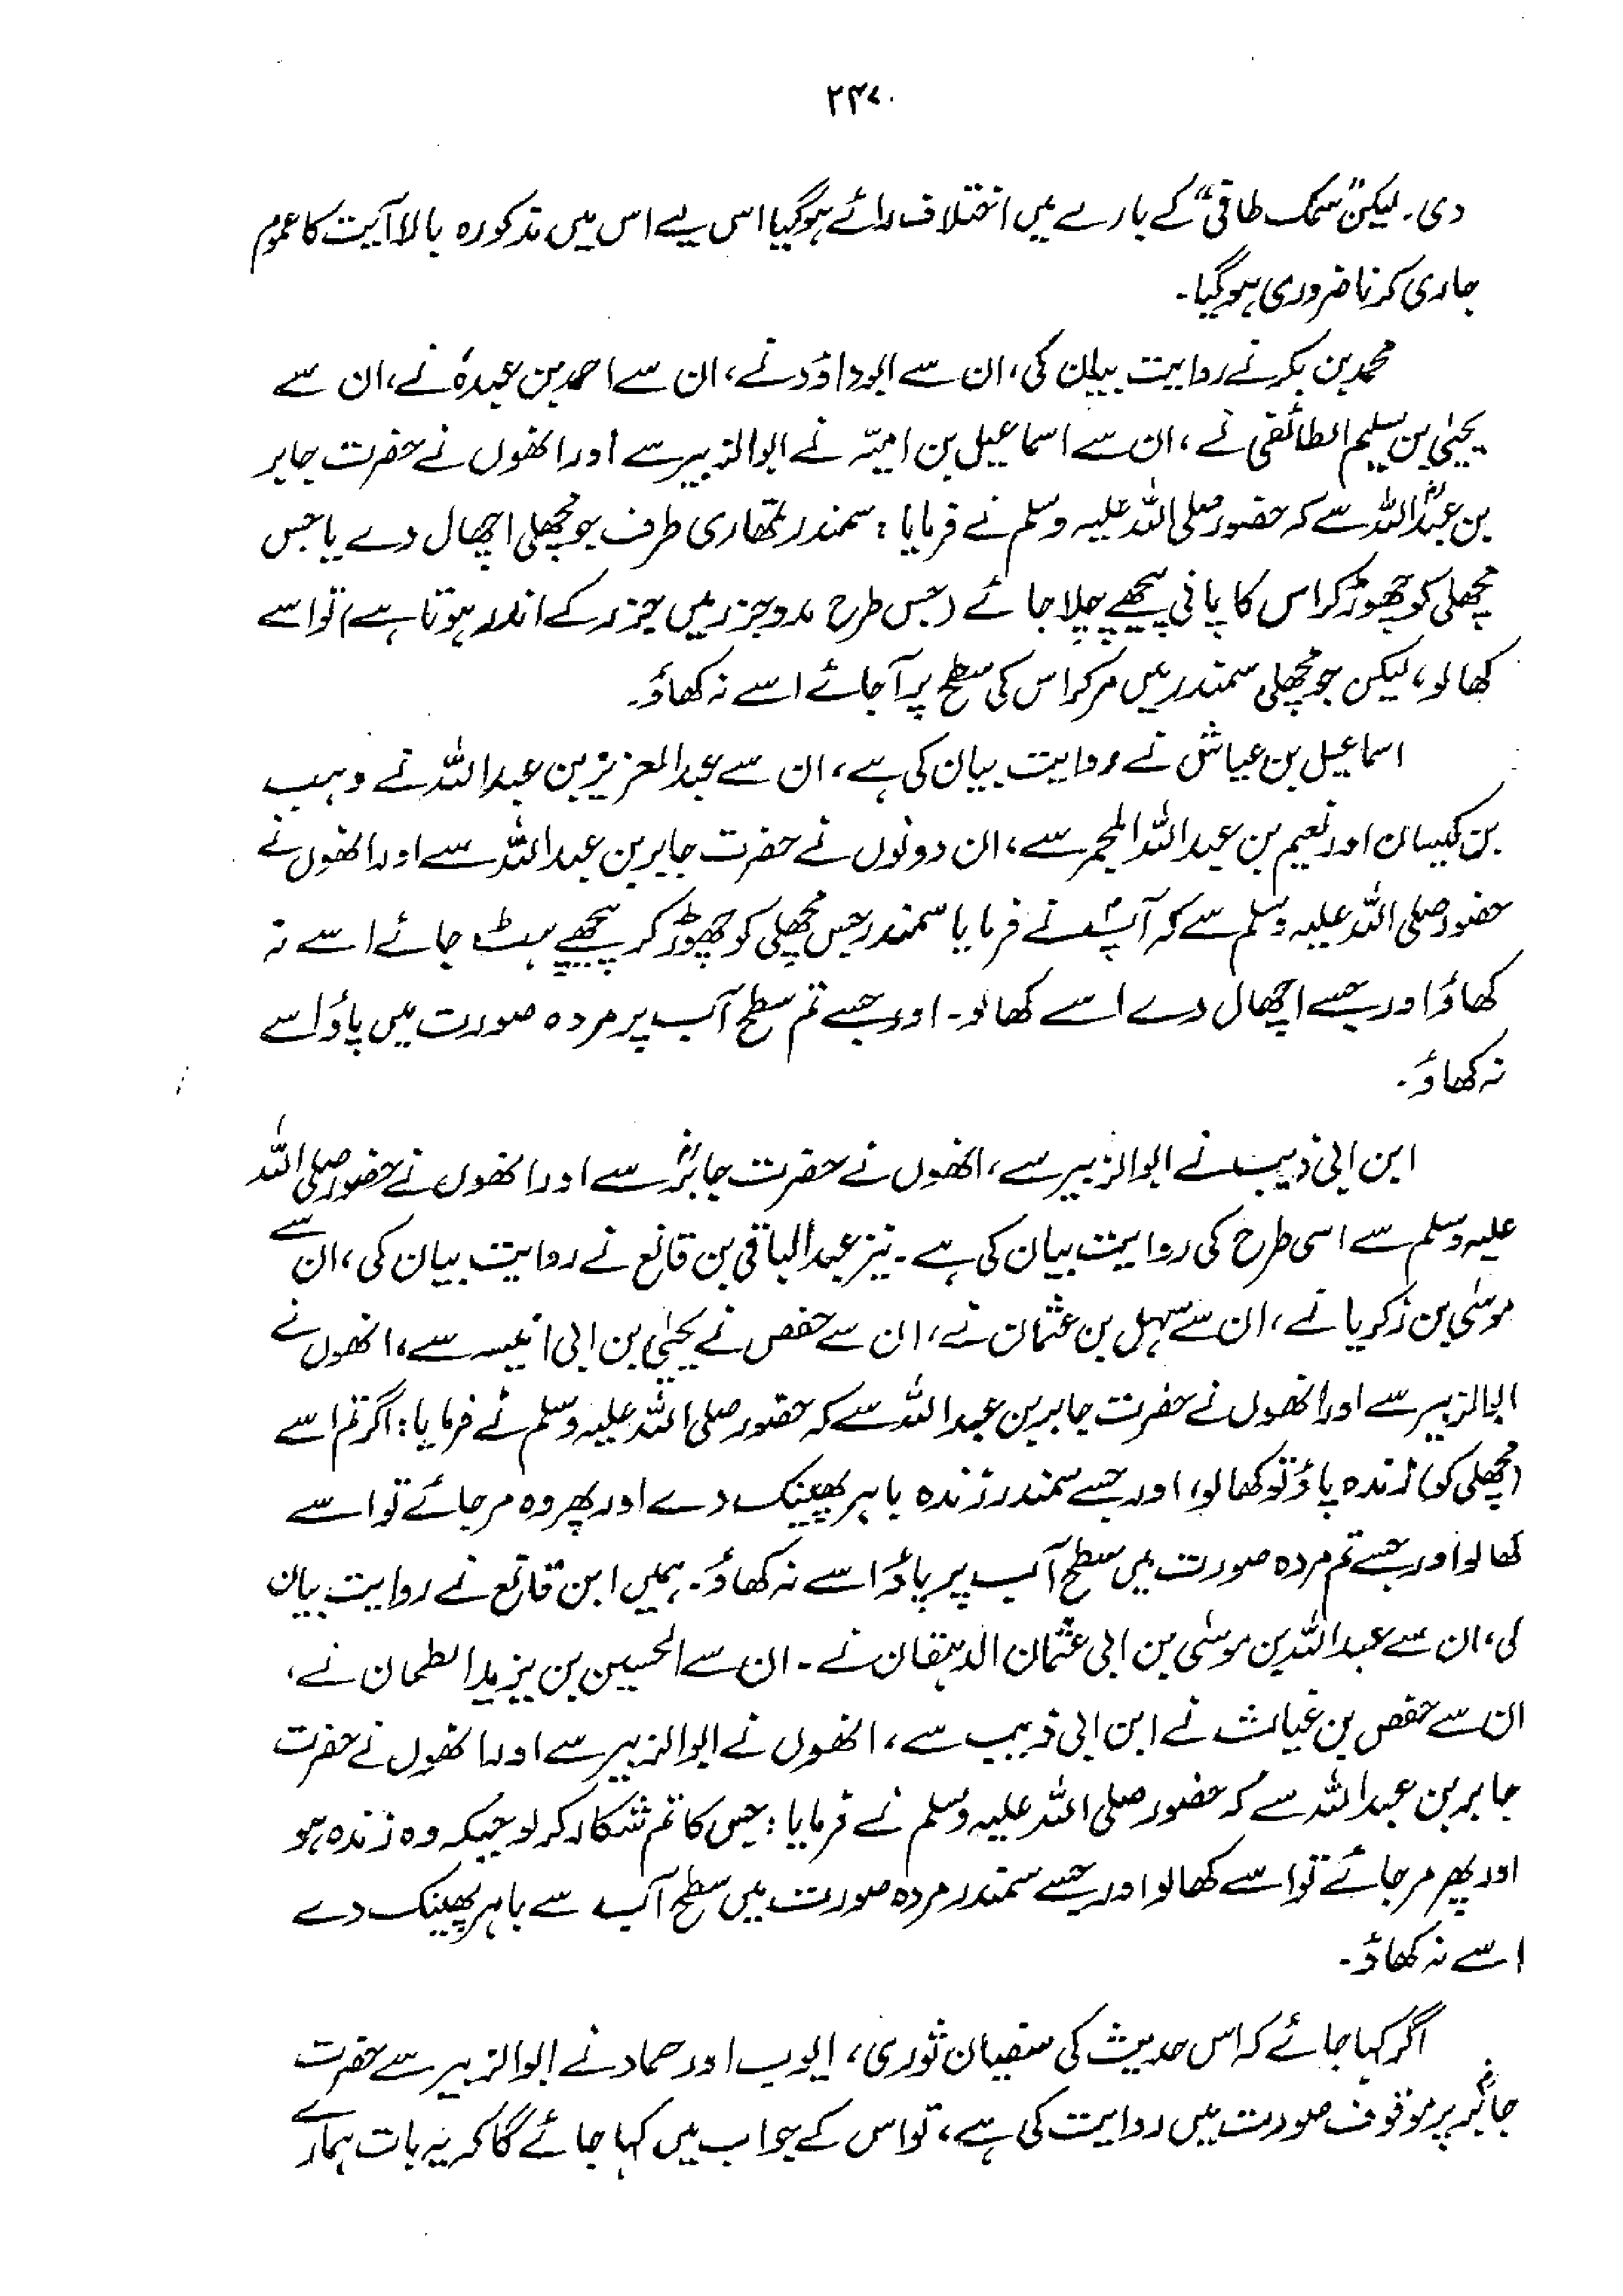 ۲۴۷۰
دی۔ لیکن "سمک طافی" کے بارے میں اختلاف رائے ہوگیا اسی لیے اس میں مذکورہ بالا آیت کا عموم
جاری کرنا ضروری ہوگیا۔
محمد بن بکر نے روایت بیان کی، ان سے ابوداؤد نے، ان سے احمد بن عبدہٗ نے، ان سے
یحییٰ بن سلیم الطائفی نے، ان سے اسماعیل بن امیّہ نے ابوالزبیر سے اور انھوں نے حضرت جابر
بن عبداللہؓ سے کہ حضور صلی اللہ علیہ وسلم نے فرمایا: سمندر تمھاری طرف جو مچھلی اچھال دے یا جس
مچھلی کو چھوڑ کر اس کا پانی پیچھے چلا جائے (جس طرح مدوجزر میں جزر کے اندر ہوتا ہے) تو اسے
کھالو، لیکن جو مچھلی سمندر میں مرکر اس کی سطح پر آجائے اسے نہ کھاؤ۔
اسماعیل بن عیاش نے روایت بیان کی ہے، ان سے عبدالعزیز بن عبداللہ نے وہب
بن کیسان اور نعیم بن عبداللہ المجمر سے، ان دونوں نے حضرت جابر بن عبداللہ سے اور انھوں نے
حضور صلی اللہ علیہ وسلم سے کہ آپؐ نے فرمایا سمندر جس مچھلی کو چھوڑ کر پیچھے ہٹ جائے اسے نہ
کھاؤ اور جسے اچھال دے اسے کھالو۔ اور جسے تم سطح آب پر مردہ صورت میں پاؤ اسے
نہ کھاؤ۔
ابن ابی ذیب نے ابوالزبیر سے، انھوں نے حضرت جابرؓ سے اور انھوں نے حضور صلی اللہ
علیہ وسلم سے اسی طرح کی روایت بیان کی ہے۔ نیز عبدالباقی بن قانع نے روایت بیان کی، ان سے
موسیٰ بن زکریا نے، ان سے سہل بن عثمان نے، ان سے حفص نے یحییٰ بن ابی انیسہ سے، انھوں نے
ابالزبیر سے اور انھوں نے حضرت جابر بن عبداللہ سے کہ حضور صلی اللہ علیہ وسلم نے فرمایا: اگر تم اسے
(مچھلی کو) زندہ پاؤ تو کھالو، اور جسے سمندر زندہ باہر پھینک دے اور پھر وہ مرجائے تو اسے
کھالو اور جسے تم مردہ صورت میں سطح آب پر پاؤ اسے نہ کھاؤ۔ ہمیں ابن قانع نے روایت بیان
کی، ان سے عبداللہ بن موسیٰ بن ابی عثمان الدہقان نے۔ ان سے الحسین بن یزید الطحان نے،
ان سے حفص بن غیاث نے ابن ابی ذہیب سے، انھوں نے ابوالزبیر سے اور انھوں نے حضرت
جابر بن عبداللہ سے کہ حضور صلی اللہ علیہ وسلم نے فرمایا: جس کا تم شکار کرلو جبکہ وہ زندہ ہو
اور پھر مرجائے تو اسے کھالو اور جسے سمندر مردہ صورت میں سطح آب سے باہر پھینک دے
اسے نہ کھاؤ۔
اگر کہا جائے کہ اس حدیث کی سفیان ثوری، ایوب اور حماد نے ابوالزبیر سے حضرت
جابرؓ پر موقوف صورت میں روایت کی ہے، تو اس کے جواب میں کہا جائے گا کہ یہ بات ہمارے